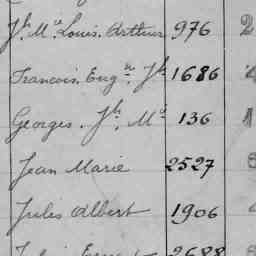 Jh. Mie Louis. Arthur 976 2
Francois. Eugne Jh 1686
Georges. Jh. Mie 136 1
Jean Marie 2527
Jules Albert 1906
2688